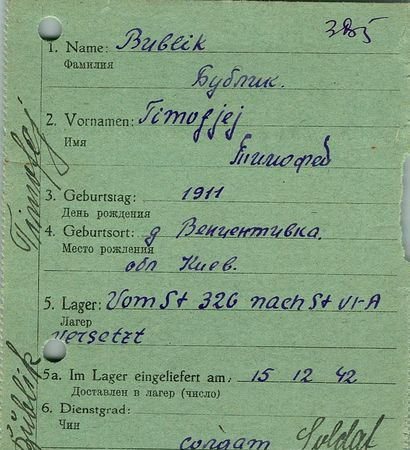 385
1. Name: Bublik
Фамилия
Бублик.
2. Vornamen: Timofjej
Имя
Тимофей
3. Geburtstag: 1911
День рождения
4. Geburtsort: д Венцентивка.
Место рождения
обл Киев.
5. Lager: Vom St 326 nach St VI-A
Лагер
versetzt
5a. Im Lager eingeliefert am: 15 12 42
Доставлен в лагер (число)
6. Dienstgrad:
Чин
солдат Soldat
Timofej
Bublik